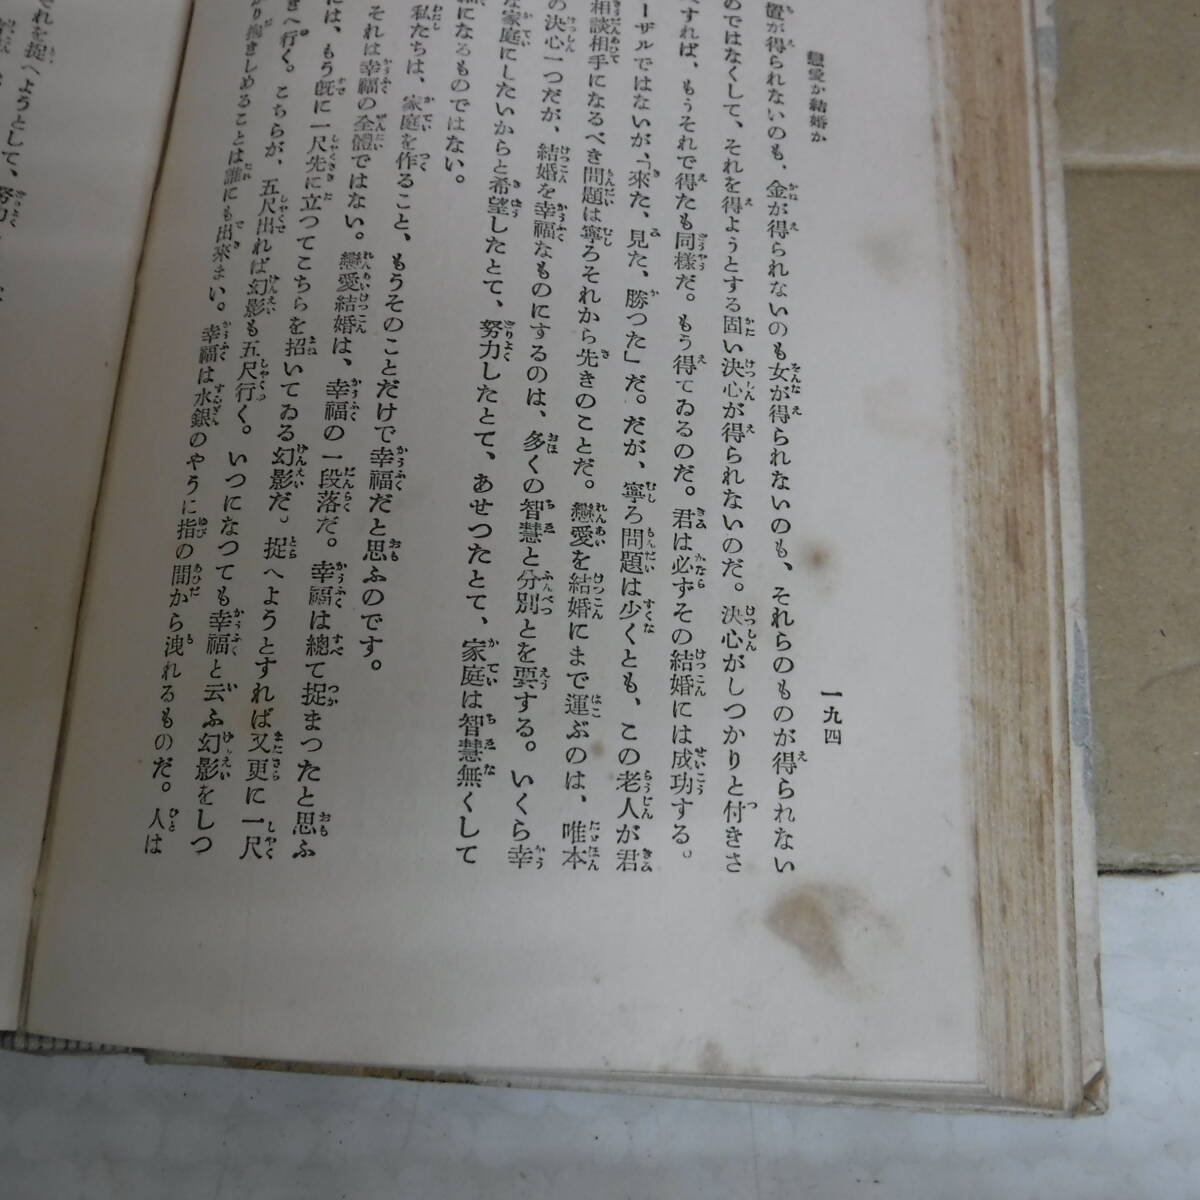 戀愛か結婚か
一九四
置が得られないのも、金が得られないのも女が得られないのも、それらのものが得られない
のではなくして、それを得ようとする固い決心が得られないのだ。決心がしつかりと付きさ
へすれば、もうそれで得たも同樣だ。もう得てゐるのだ。君は必ずその結婚には成功する。
ーザルではないが、「來た、見た、勝つた」だ。だが、寧ろ問題は少くとも、この老人が君
相談相手になるべき問題は寧ろそれから先きのことだ。戀愛を結婚にまで運ぶのは、唯本
の決心一つだが、結婚を幸福なものにするのは、多くの智慧と分別とを要する。いくら幸
な家庭にしたいからと希望したとて、努力したとて、あせつたとて、家庭は智慧無くして
福になるものではない。
私たちは、家庭を作ること、もうそのことだけで幸福だと思ふのです。
それは幸福の全體ではない。戀愛結婚は、幸福の一段落だ。幸福は總て捉まつたと思ふ
には、もう既に一尺先に立つてこちらを招いてゐる幻影だ。捉へようとすれば又更に一尺
きへ行く。こちらが、五尺出れば幻影も五尺行く。いつになつても幸福と云ふ幻影をしつ
かり抱きしめることは誰にも出來ない。幸福は水銀のやうに指の間から洩れるものだ。人は
それを捉へようとして、努力